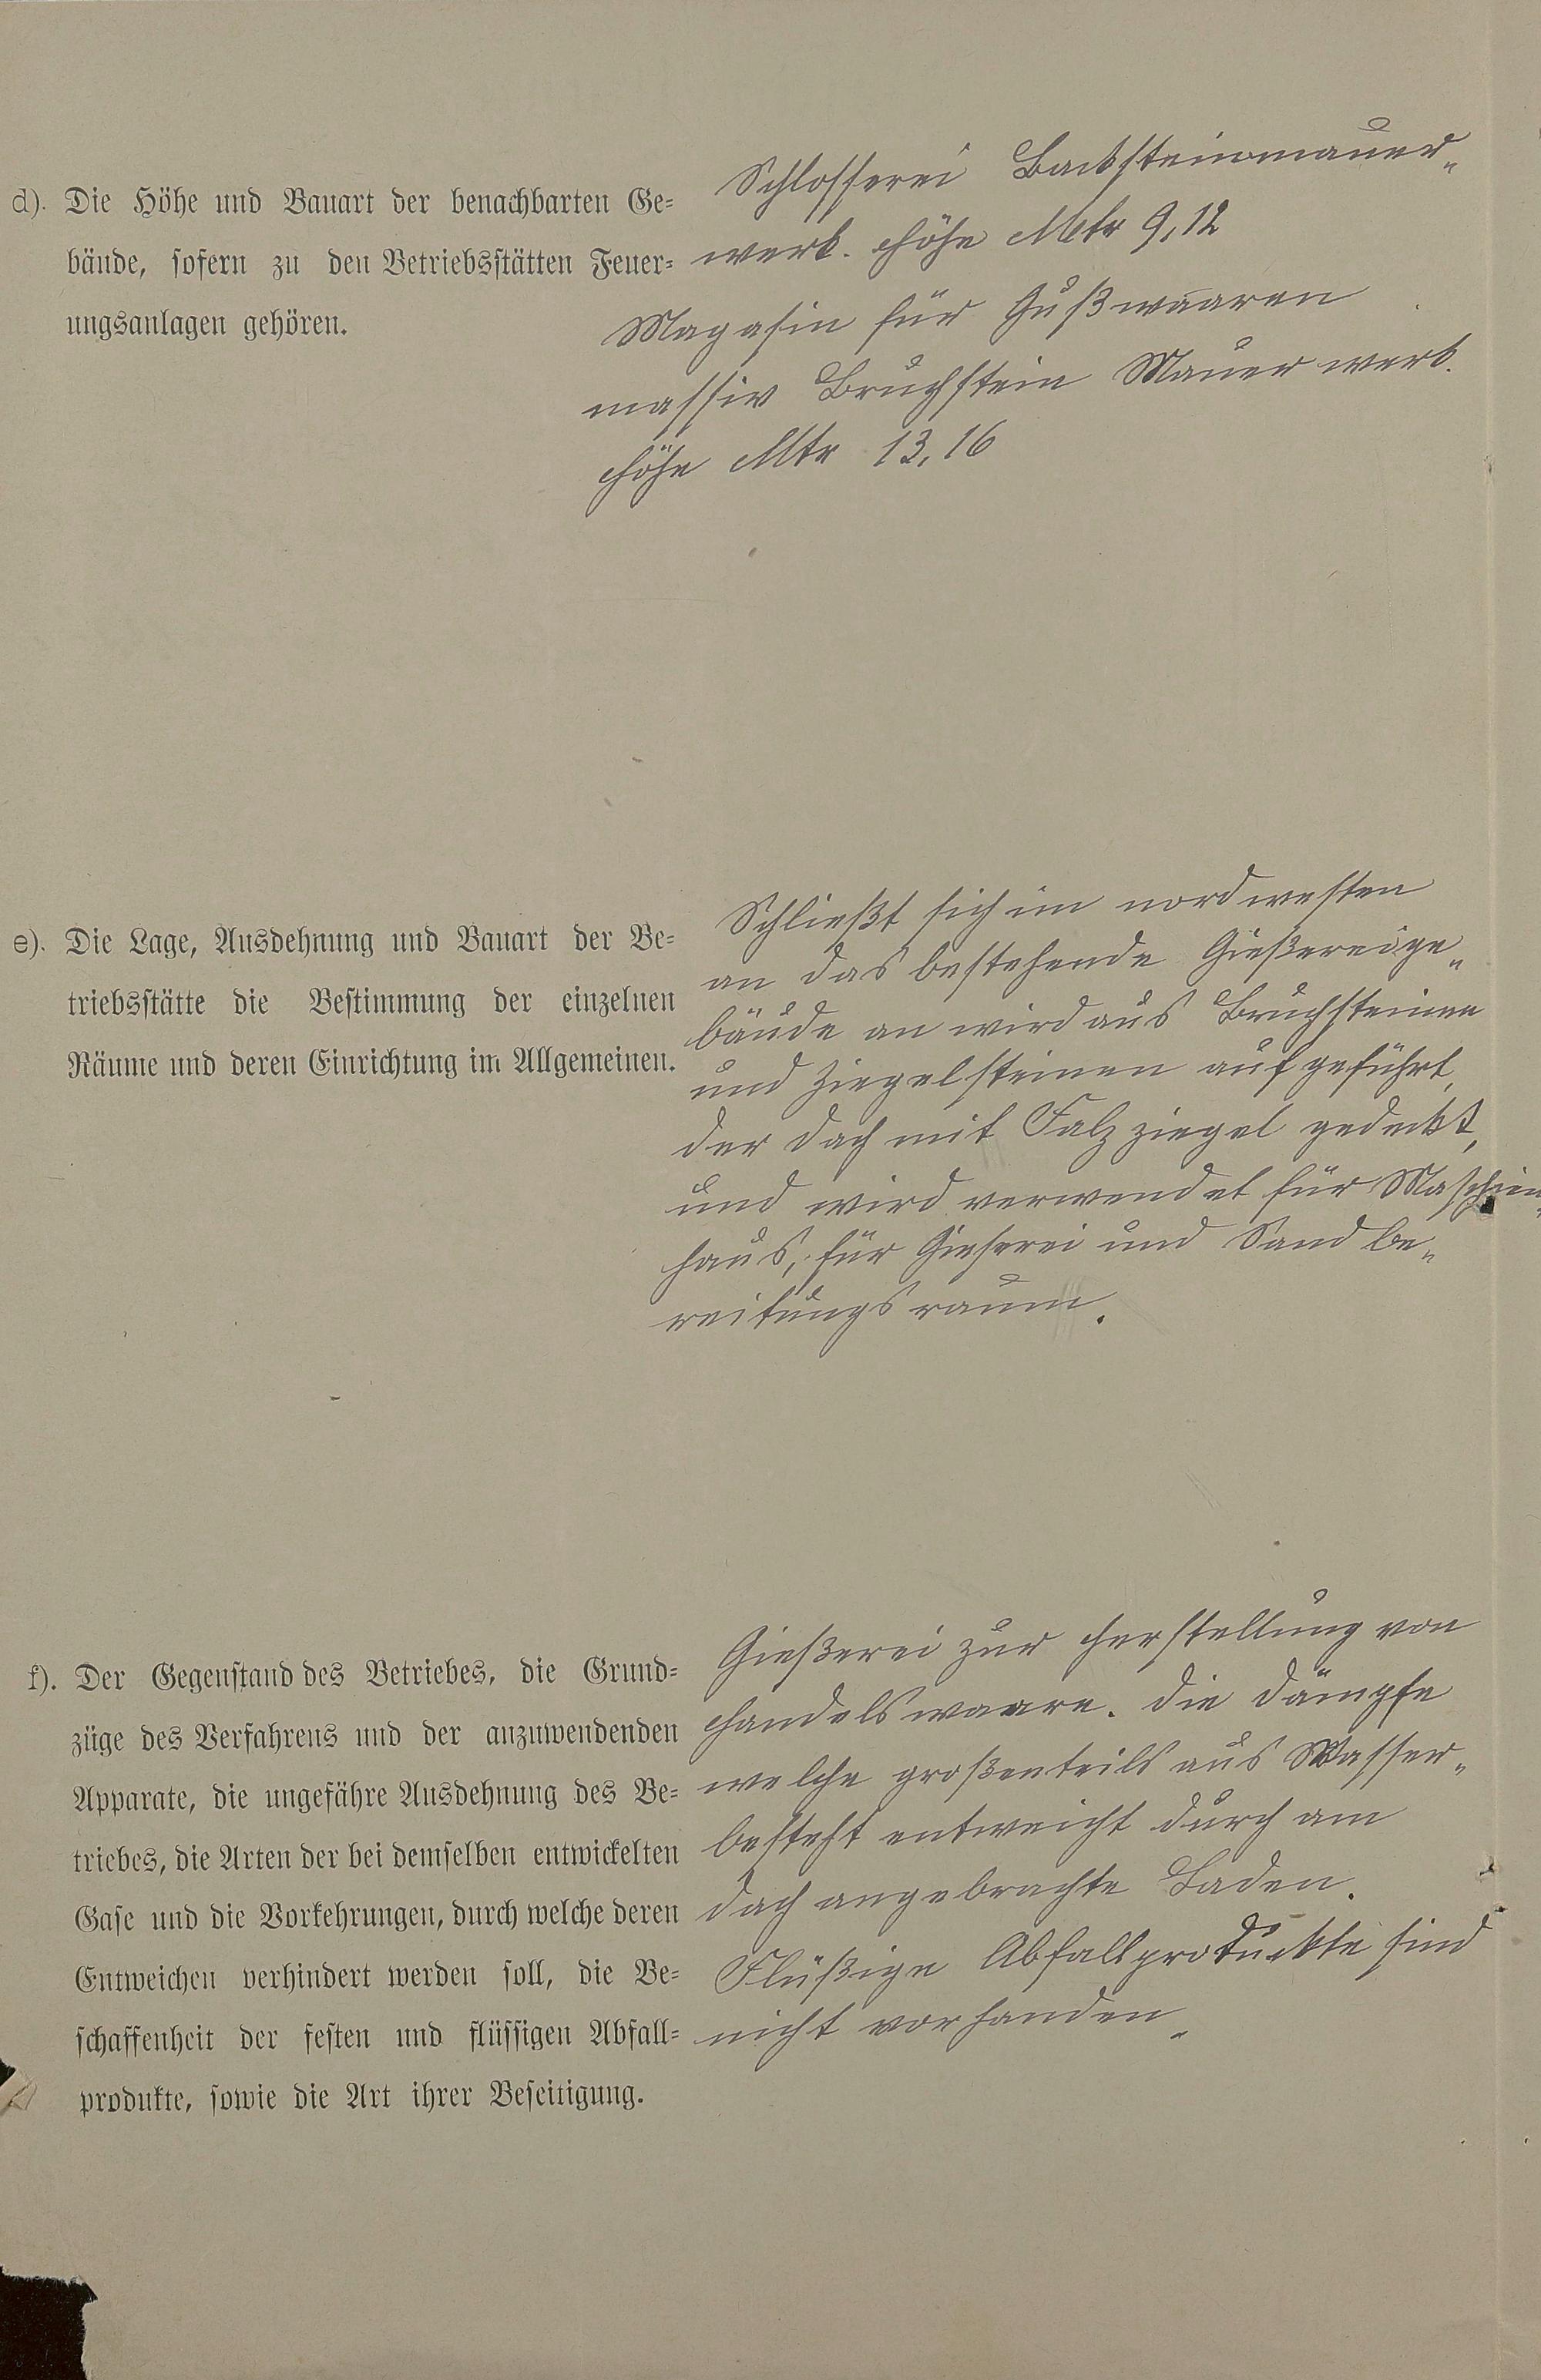 d). Die Höhe und Bauart der benachbarten Ge=
bäude, sofern zu den Betriebsstätten Feuer=
ungsanlagen gehören.
Schlosserei Backsteinmauer„
werk. Höhe Mtr 9,12
Magasin für Gußwaaren
massiv Bruchstein Mauerwerk.
Höhe Mtr 13,16
e). Die Lage, Ausdehnung und Bauart der Be=
triebsstätte die Bestimmung der einzelnen
Räume und deren Einrichtung im Allgemeinen.
Schließt sich im nordwesten
an das bestehende Gießereige„
bäude an wird aus Bruchsteinen
und Ziegelsteinen aufgeführt,
der Dach mit Falzziegel gedeckt,
und wird verwendet für Maschien„
haus, für Gieserei und Sand be„
reitungsraum.
f). Der Gegenstand des Betriebes, die Grund=
züge des Verfahrens und der anzuwendenden
Apparate, die ungefähre Ausdehnung des Be=
triebes, die Arten der bei demselben entwickelten
Gase und die Vorkehrungen, durch welche deren
Entweichen verhindert werden soll, die Be=
schaffenheit der festen und flüssigen Abfall=
produkte, sowie die Art ihrer Beseitigung.
Gießerei zur Herstellung von
Handelswaare. Die Dämpfe
welche großenteils aus Wasser„
besteht entweicht durch am
Dach angebrachte Laden.
Flüßige Abfallproduckte sind
nicht vorhanden„